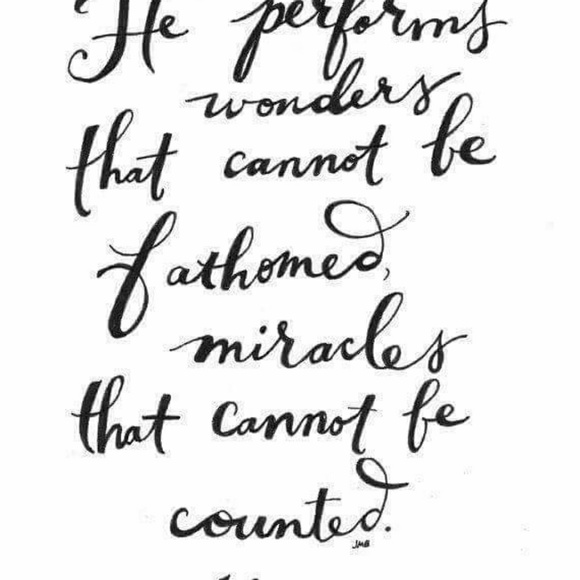 He performs
wonders
that cannot be
fathomed,
miracles
that cannot be
counted.
JMB